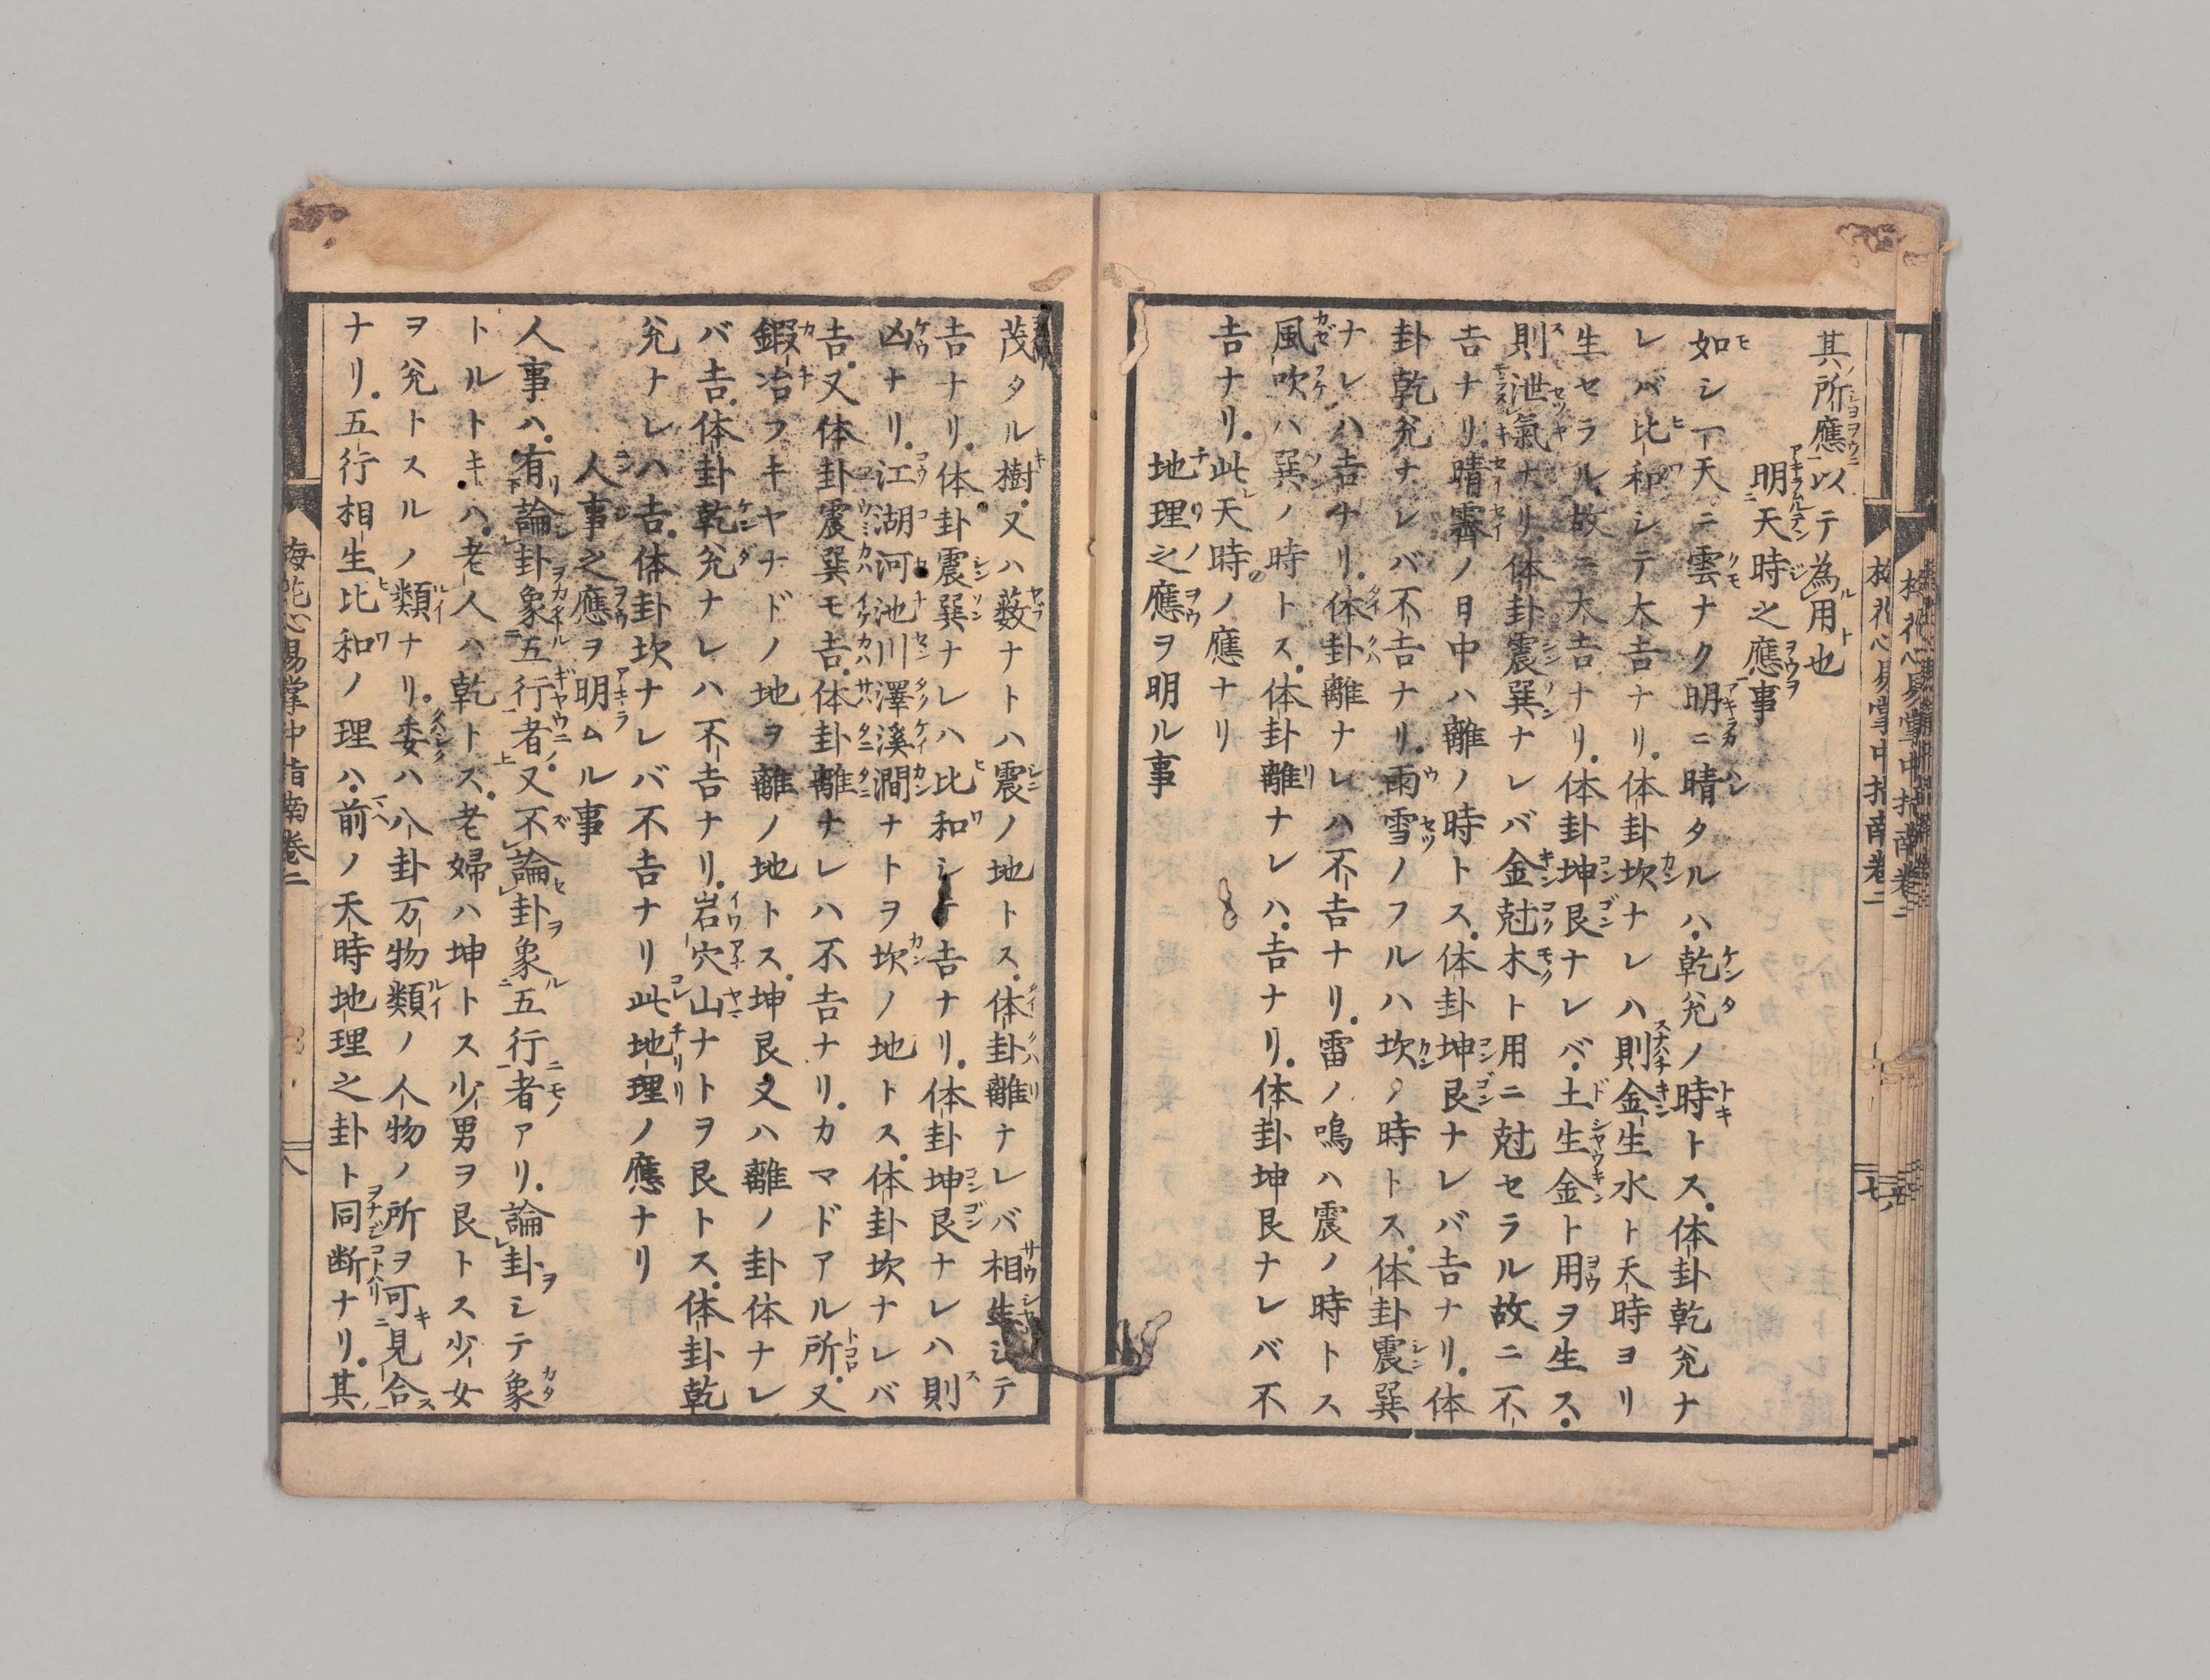 其所應以テ為用也
明天時之應事
如シ一天ニ雲ナク明ニ晴タルハ乾兊ノ時トス体卦乾兊ナ
レバ比和シテ大吉ナリ体卦坎ナレハ則金生水ト天時ヨリ
生セラル故ニ大吉ナリ体卦坤艮ナレバ土生金ト用ヲ生ス
則泄氣ナリ体卦震巽ナレバ金尅木ト用ニ尅セラル故ニ不
吉ナリ晴霽ノ日中ハ離ノ時トス体卦坤艮ナレバ吉ナリ体
卦乾兊ナレバ不吉ナリ雨雪ノフルハ坎ノ時トス体卦震巽
ナレハ吉ナリ体卦離ナレハ不吉ナリ雷ノ鳴ハ震ノ時トス
風吹ハ巽ノ時トス体卦離ナレハ吉ナリ体卦坤艮ナレバ不
吉ナリ此天時ノ應ナリ
地理之應ヲ明ル事
茂タル樹又ハ薮ナトハ震ノ地トス体卦離ナレバ相生シテ
吉ナリ体卦震巽ナレハ比和シテ吉ナリ体卦坤艮ナレハ則
凶ナリ江湖河池川澤溪澗ナトヲ坎ノ地トス体卦坎ナレバ
吉又体卦震巽モ吉体卦離ナレハ不吉ナリカマドアル所又
鍜冶フキヤナドノ地ヲ離ノ地トス坤艮又ハ離ノ卦体ナレ
バ吉体卦乾兊ナレハ不吉ナリ岩穴山ナトヲ艮トス体卦乾
兊ナレハ吉体卦坎ナレバ不吉ナリ此地理ノ應ナリ
人事之應ヲ明ムル事
人事ハ有論卦象五行者又不論卦象五行者アリ論卦シテ象
トルトキハ老人ハ乾トス老婦ハ坤トス少男ヲ艮トス少女
ヲ兊トスルノ類ナリ委ハ八卦万物類ノ人物ノ所ヲ可見合
ナリ五行相生比和ノ理ハ前ノ天時地理之卦ト同断ナリ其
梅花心易掌中指南卷二
八